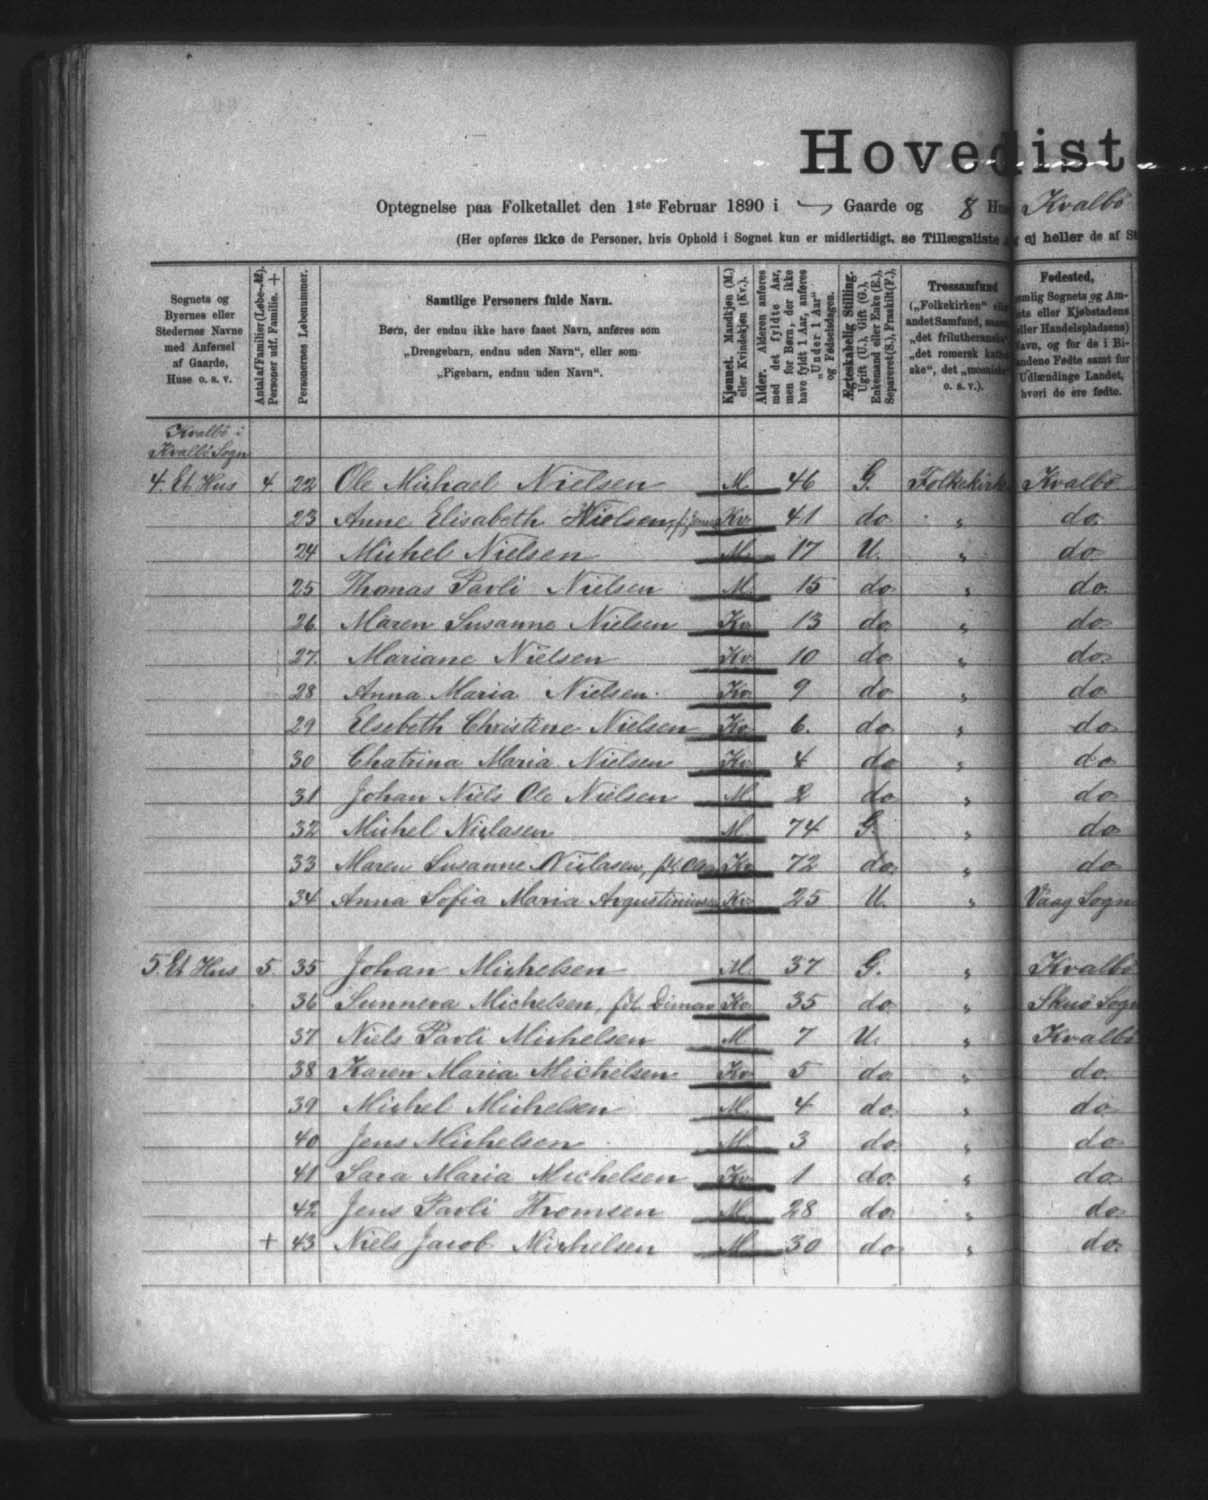 Hovedist
Optegnelse paa Folketallet den 1ste Februar 1890 i Gaarde og 8 Hu Kvalbö
(Her opføres ikke de Personer, hvis Ophold i Sognet kun er midlertidigt, se Tillægsliste ej heller de af St
Sognets og Byernes eller Stedernes Navne med Anførsel af Gaarde, Huse o. s. v.
Antal af Familier (Løbe-№). Personer udf. Familie. +
Personernes Løbenummer.
Samtlige Personers fulde Navn.
Børn, der endnu ikke have faaet Navn, anføres som
„Drengebarn, endnu uden Navn“, eller som
„Pigebarn, endnu uden Navn“.
Kjønnet. Mandkjøn (M.) eller Kvindekjøn (Kv.).
Alder. Alderen anføres med det fyldte Aar, men for Børn, der ikke have fyldt 1 Aar, anføres „Under 1 Aar“ og Fødselsdagen.
Ægteskabelig Stilling. Ugift (U.), Gift (G.), Enkemand eller Enke (E.), Separeret (S.), Fraskilt (F.).
Trossamfund
(„Folkekirken“ eller
andet Samfund, saasom
„det frilutheranske“
„det romersk katholske“, det „mosaiske“
o. s. v.).
Fødested,
nemlig Sognets og Amtets eller Kjøbstadens
(eller Handelspladsens)
Navn, og for de i Bilandene Fødte samt for
Udlændinge Landet,
hvori de ere fødte.
Kvalbö i
Kvalbö Sogn
4. Et Hus 4. 22 Ole Michael Nielsen M. 46 G. Folkekirk Kvalbö
23 Anne Elisabeth Nielsen, f. Kv. 41 do. „ do.
24 Michel Nielsen M. 17 U. „ do
25 Thomas Pavli Nielsen M. 15 do. „ do.
26 Maren Susanne Nielsen Kv. 13 do „ do
27 Mariane Nielsen Kv. 10 do „ do.
28 Anna Maria Nielsen. Kv. 9 do „ do
29 Elsebeth Christine Nielsen Kv. 6. do. „ do.
30 Chatrina Maria Nielsen Kv 4 do „ do
31 Johan Niels Ole Nielsen M. 2 do „ do
32 Michel Niclasen M. 74 G. „ do
33 Maren Susanne Niclasen, fd. Olsen Kv. 72 do. „ do
34 Anna Sofia Maria Avgustiniusen Kv. 25 U. „ Vaag Sogn
5. Et Hus 5. 35 Johan Michelsen M. 37 G. „ Kvalbö
36 Sunneva Michelsen, fd. Dimon Kv. 35 do „ Skuö Sogn
37 Niels Pavli Michelsen M. 7 U. „ Kvalbö
38 Karen Maria Michelsen Kv. 5 do „ do.
39 Michel Michelsen M. 4 do. „ do
40 Jens Michelsen M. 3 do. „ do
41 Sara Maria Michelsen Kv. 1 do. „ do
42 Jens Pavli Thomsen M. 28 do „ do
+ 43 Niels Jacob Michelsen M. 30 do „ do.